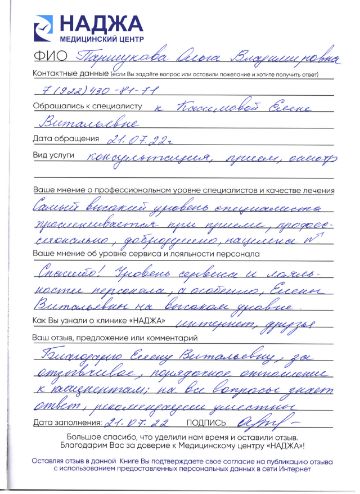 НАДЖА
МЕДИЦИНСКИЙ ЦЕНТР
ФИО Паршукова Ольга Владимировна
Контактные данные (если Вы задаёте вопрос или оставили пожелание и хотите получить ответ)
7(922)490-81-71
Обращались к специалисту к Касимовой Елене
Витальевне
Дата обращения 21.07.22г.
Вид услуги консультация, прием, осмотр
Ваше мнение о профессиональном уровне специалистов и качестве лечения
Самый высокий уровень специалиста
просматривается при приеме, профес-
сионально, доброжелательно,
Ваше мнение об уровне сервиса и лояльности персонала
Спасибо! Уровень сервиса и лояль-
ности персонала, а особенно, Елены
Витальевны на высоком уровне
Как Вы узнали о клинике «НАДЖА» интернет, друзья
Ваш отзыв, предложение или комментарий
Благодарю Елену Витальевну, за
отзывчивое, порядочное отношение
к пациентам; на все вопросы знает
ответ, рекомендации уместны
Дата заполнения: 21.07.22 ПОДПИСЬ
Большое спасибо, что уделили нам время и оставили отзыв.
Благодарим Вас за доверие к Медицинскому центру «НАДЖА»!
Оставляя отзыв в данной Книге Вы подтверждаете свое согласие на публикацию отзыва
с использованием предоставленных персональных данных в сети Интернет